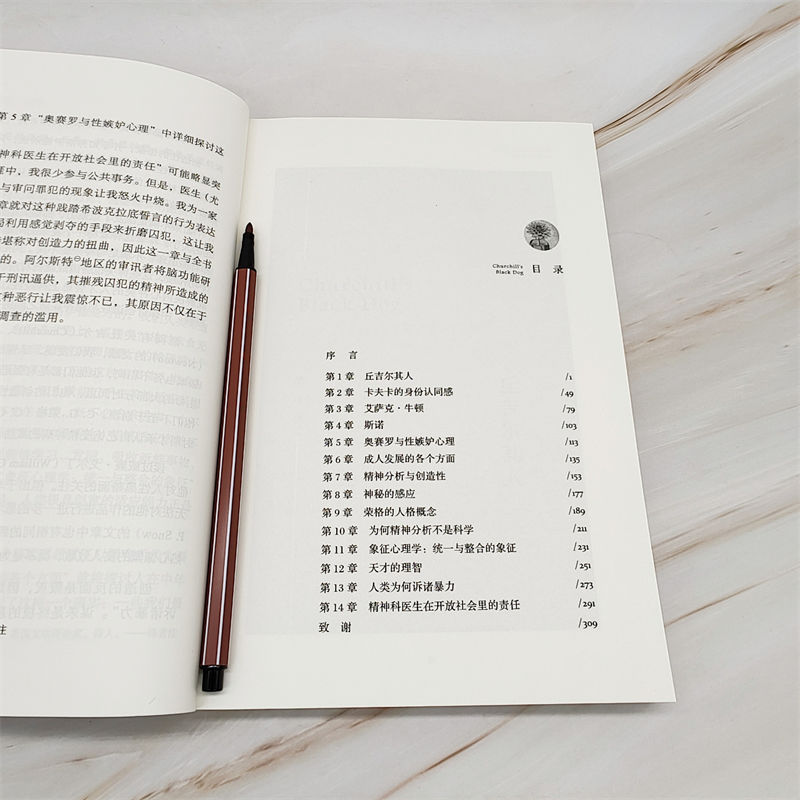 第5章“奥赛罗与性嫉妒心理”中详细探讨这
神科医生在开放社会里的责任”可能略显突
中，我很少参与公共事务。但是，医生（尤
与审问罪犯的现象让我怒火中烧。我为一家
章就对这种践踏希波克拉底誓言的行为表达
利用感觉剥夺的手段来折磨囚犯，这让我
堪称对创造力的扭曲，因此这一章与全书
。阿尔斯特⊖地区的审讯者将脑功能研
于刑讯逼供，其摧残囚犯的精神所造成的
种恶行让我震惊不已，其原因不仅在于
调查的滥用。
注
Churchill's
Black Dog
目 录
Churchill's
Black Dog
序 言
第1章 丘吉尔其人 /1
第2章 卡夫卡的身份认同感 /49
第3章 艾萨克·牛顿 /79
第4章 斯诺 /103
第5章 奥赛罗与性嫉妒心理 /113
第6章 成人发展的各个方面 /135
第7章 精神分析与创造性 /153
第8章 神秘的感应 /177
第9章 荣格的人格概念 /189
第10章 为何精神分析不是科学 /211
第11章 象征心理学：统一与整合的象征 /231
第12章 天才的理智 /251
第13章 人类为何诉诸暴力 /273
第14章 精神科医生在开放社会里的责任 /291
致 谢 /309